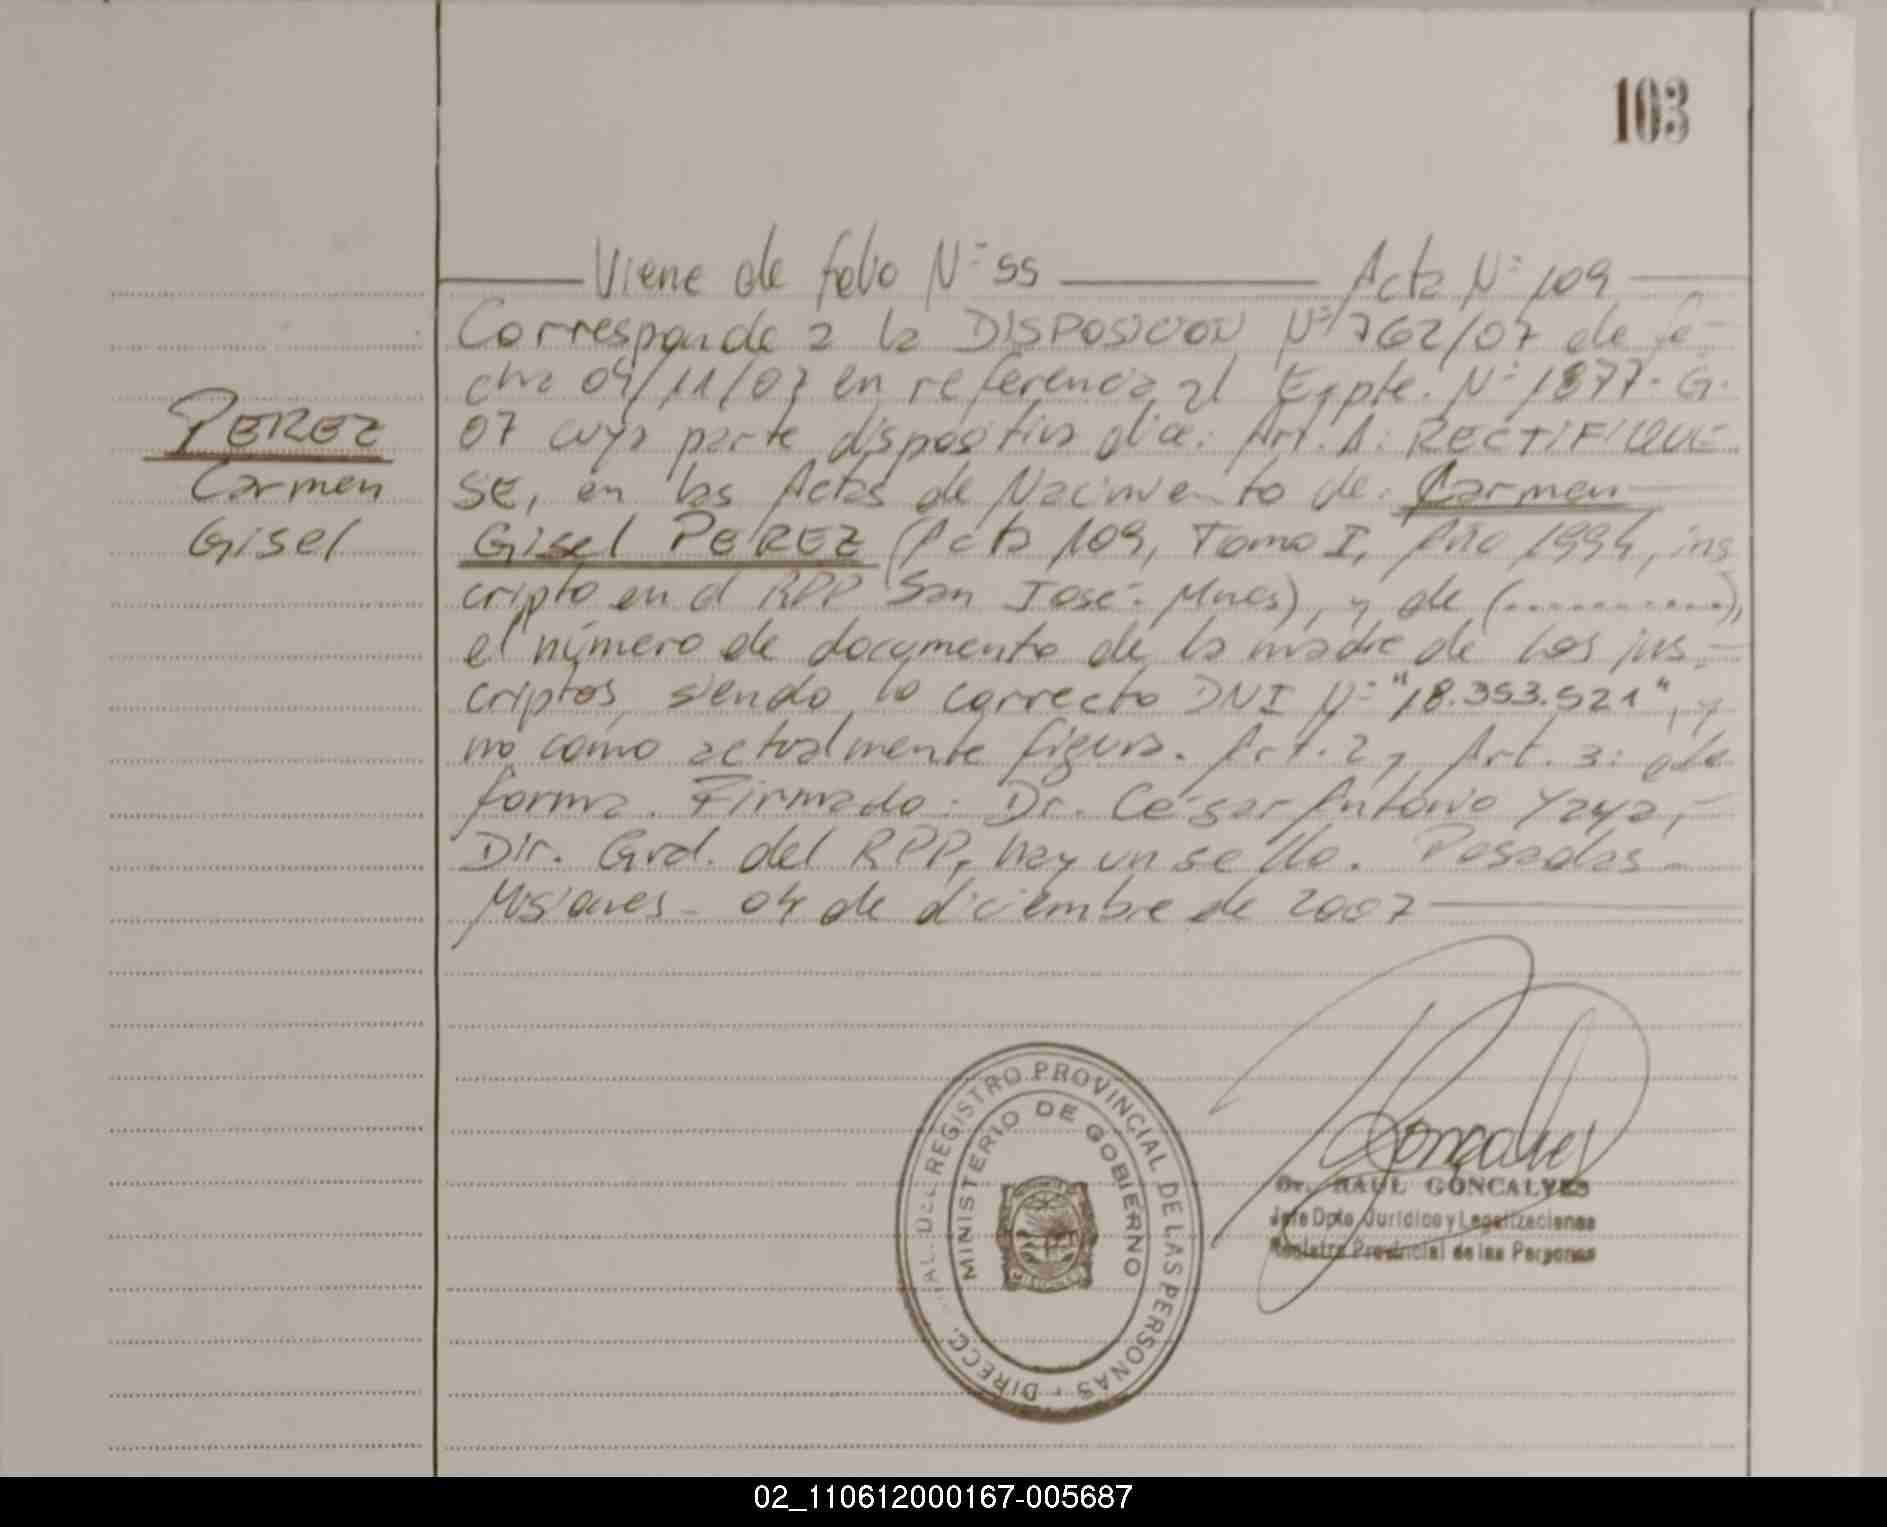 103
Viene de folio Nº 55 Acta Nº 109
Corresponde a la DISPOSICION Nº 762/07 de fe-
cha 09/11/07 en referencia al Expte. Nº 1877-G-
07 cuya parte dispositiva dice: Art. 1: RECTIFIQUE
SE, en las Actas de Nacimiento de: Carmen
Gisel PEREZ (Acta 109, Tomo I, Año 1994, ins
cripto en el RPP San José- Mnes), y de (............),
el número de documento de la madre de los ins-
criptos, siendo lo correcto DNI Nº "18.353.521", y
no como actualmente figura. Art. 2 y Art. 3: de
forma. Firmado: Dr. César Antonio Yaya,-
Dir. Gral. del RPP, hay un sello. Posadas-
Misiones- 04 de diciembre de 2007
PEREZ
Carmen
Gisel
DIRECC. REGISTRO PROVINCIAL DE LAS PERSONAS
MINISTERIO DE GOBIERNO
MISIONES
Goncalves
Dr. RAUL GONCALVES
Jefe Dpto. Jurídico y Legalizaciones
Registro Provincial de las Personas
02_110612000167-005687